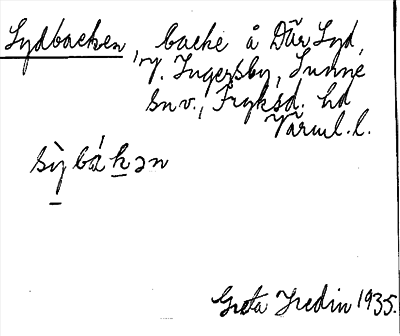 Lydbacken, backe å Där Lyd,
V. Ingersby, Sunne
sn v., Fryksd. hd
Värml. l.
sỳbákən
Greta Hedin 1935.